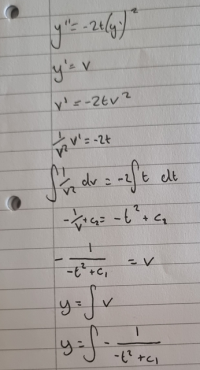 y'' = -2t(y')²
y' = v
v' = -2tv²
1/v² v' = -2t
∫ 1/v² dv = -2∫ t dt
-1/v + c₂ = -t² + c₂
- 1/(-t² + c₁) = v
y = ∫ v
y = ∫ - 1/(-t² + c₁)